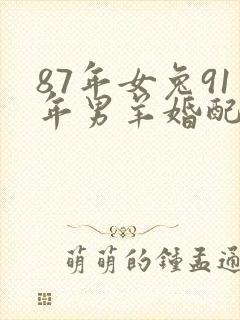 87年女兔91
年男羊婚配
萌萌的鍾孟通